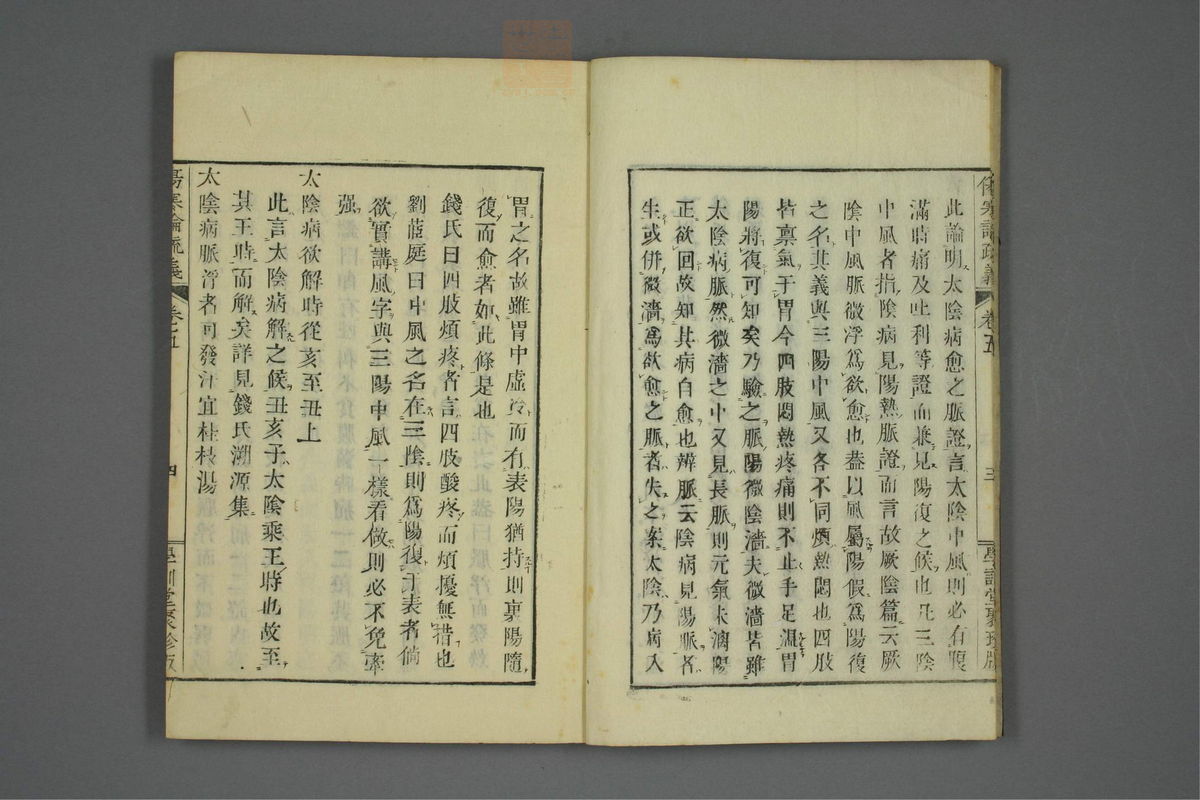 傷寒論疏義 卷五 三 學訓堂聚珍版
此論明太陰病愈之脈證言太陰中風則必有腹
滿時痛及吐利等證而兼見陽復之候也凡三陰
中風者指陰病見陽熱脈證而言故厥陰篇云厥
陰中風脈微浮爲欲愈也蓋以風屬陽假爲陽復
之名其義與三陽中風又各不同煩熱悶也四肢
皆稟氣于胃今四肢悶熱疼痛則不止手足溫胃
陽將復可知矣乃驗之脈陽微陰濇夫微濇皆雖
太陰病脈然微濇之中又見長脈則元氣未漓陽
正欲回故知其病自愈也辨脈云陰病見陽脈者
生或併微濇爲欲愈之脈者失之矣太陰乃病入
胃之名故雖胃中虛冷而有表陽猶持則裏陽隨
復而愈者如此條是也
錢氏曰四肢煩疼者言四肢酸疼而煩擾無措也
劉茝庭曰中風之名在三陰則爲陽復于表者倘
欲實講風字與三陽中風一樣看做則必不免牽
强
太陰病欲解時從亥至丑上
此言太陰病解之候丑亥子太陰乘王時也故至
其王時而解矣詳見錢氏溯源集
太陰病脈浮者可發汗宜桂枝湯
傷寒論疏義 卷五 四 學訓堂聚珍版